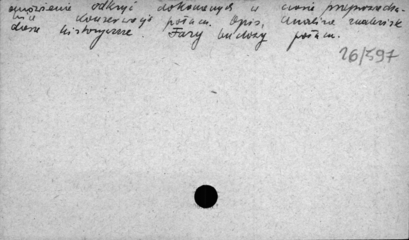 omówienie odkryć dokonanych w czasie przeprowadza-
nia konserwacji połacu. Opis, analiza znalezisk
dzieje historyczne. Fazy budowy połacu.
26/597